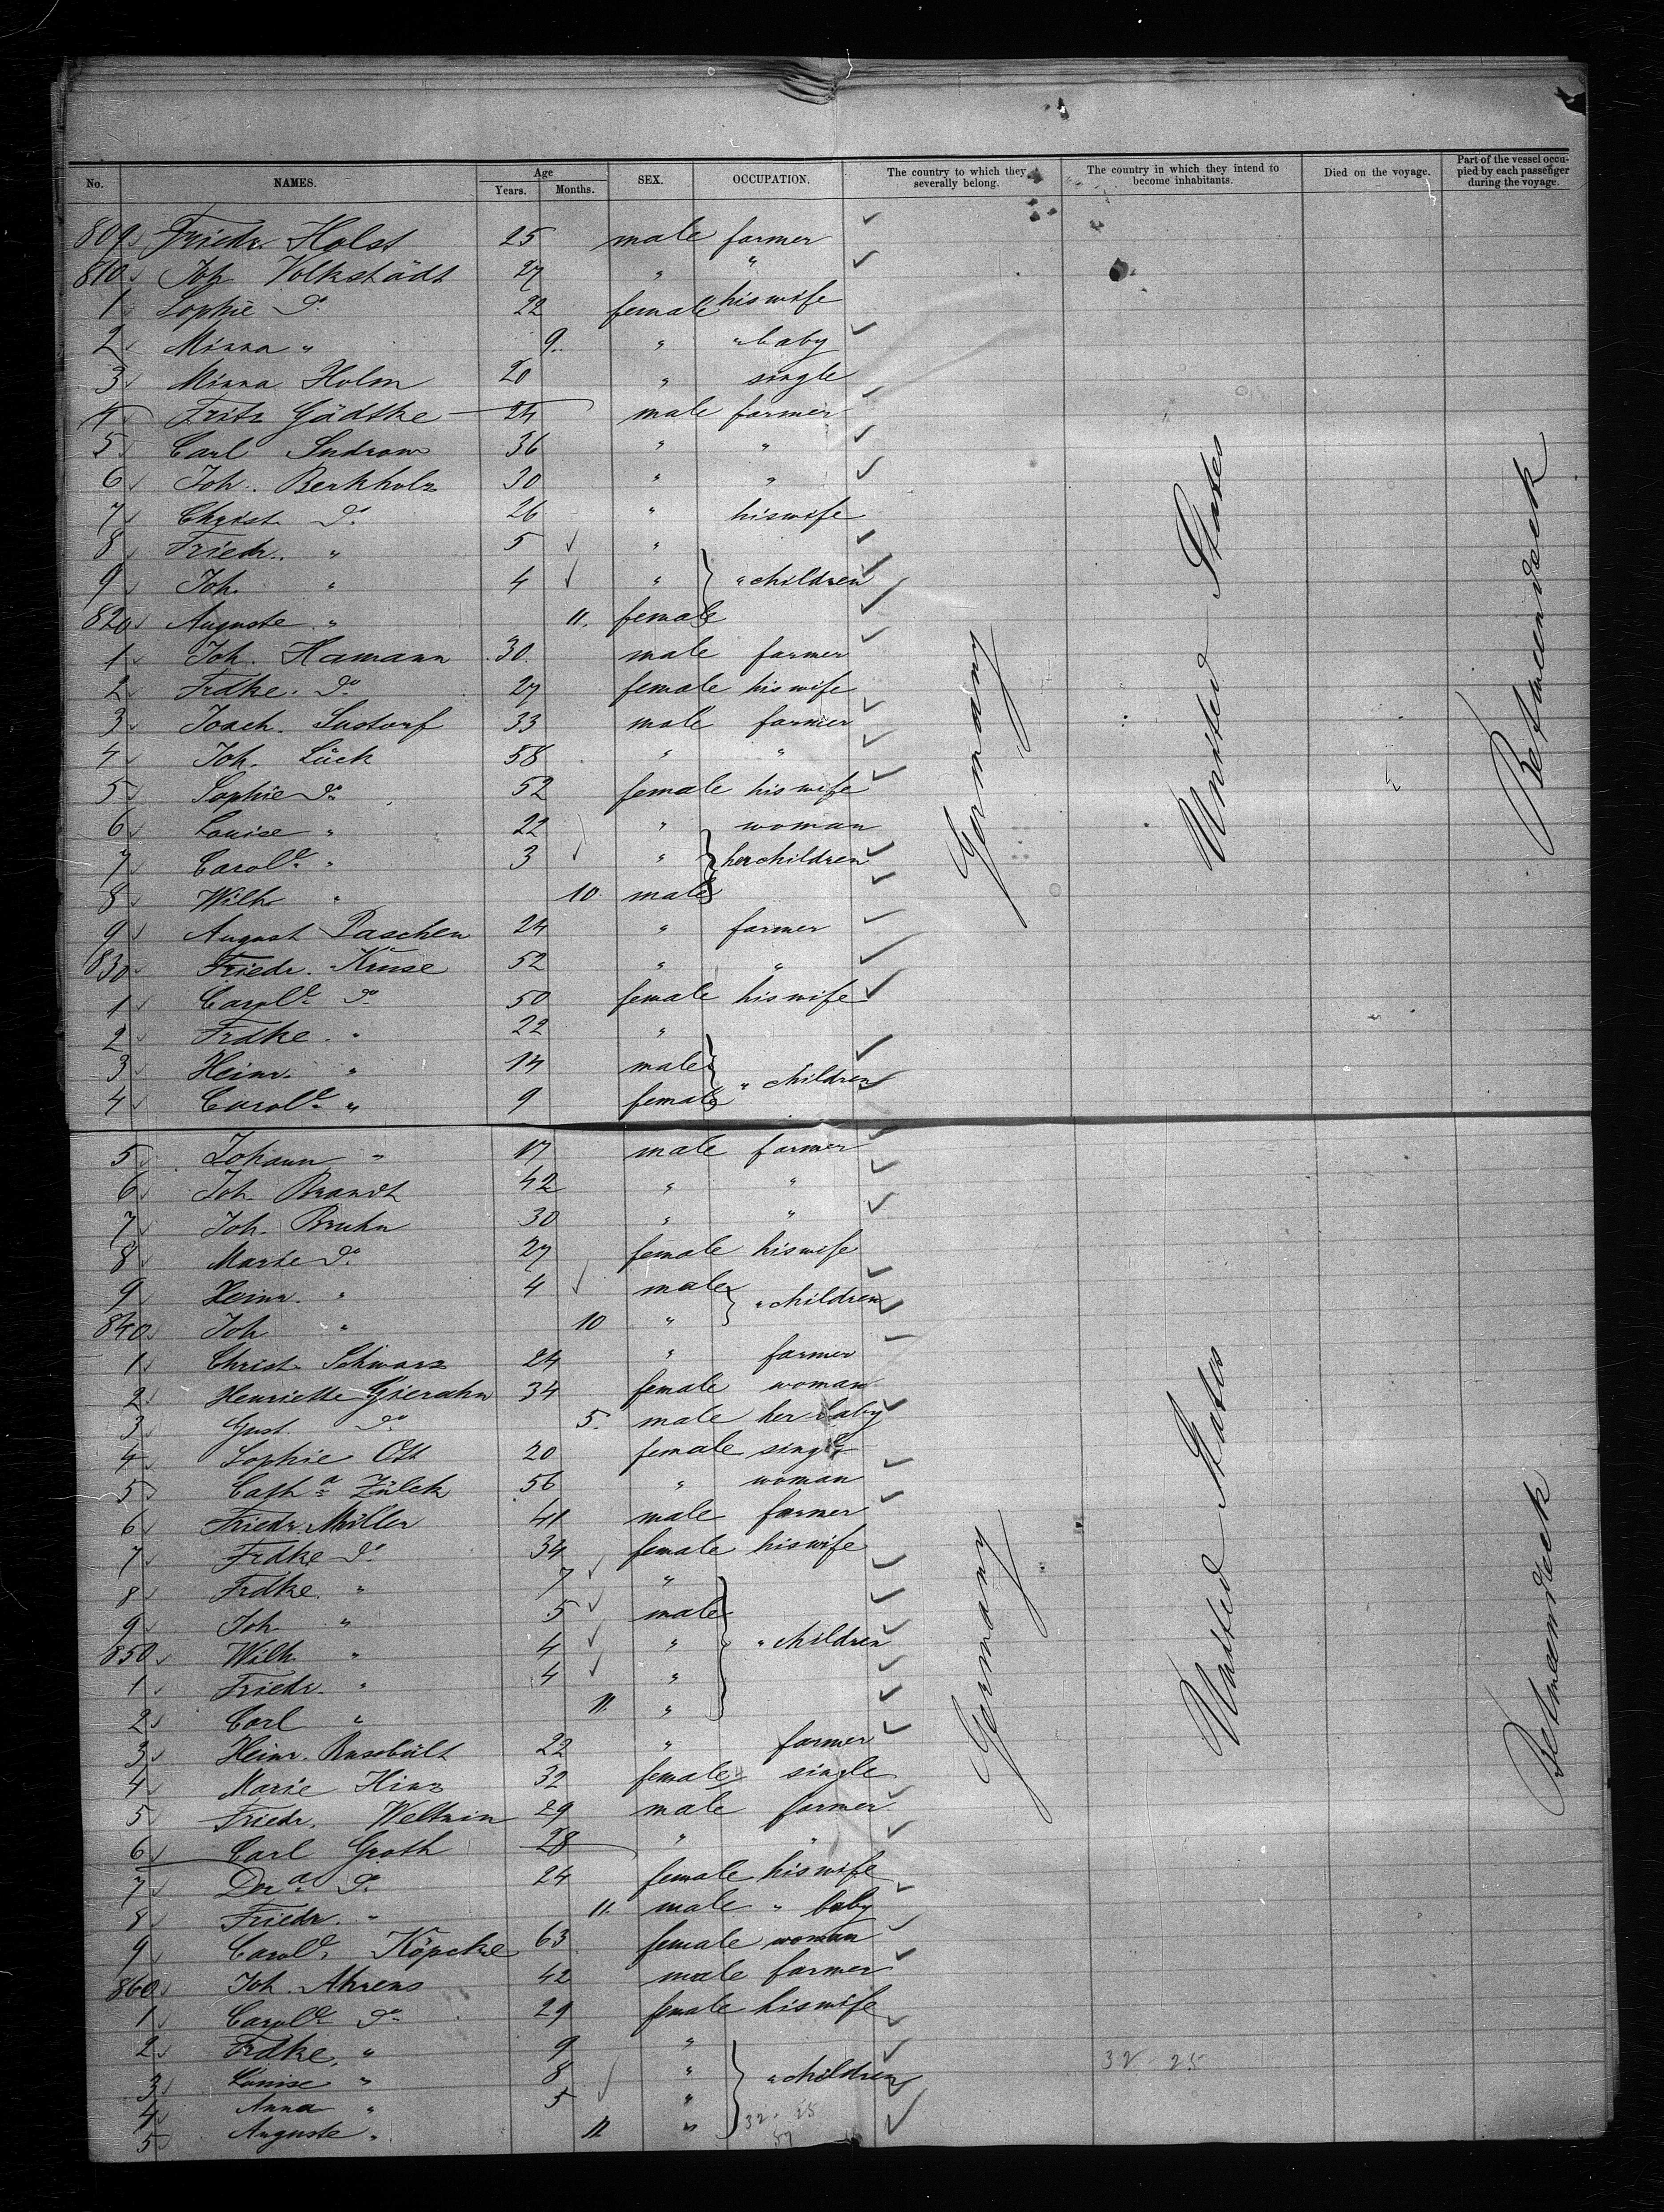 No. NAMES. Age Years. Months. SEX. OCCUPATION. The country to which they severally belong. The country in which they intend to become inhabitants. Died on the voyage. Part of the vessel occupied by each passenger during the voyage.
809 Friedr. Holst 25 male farmer
810 Joh. Volkstädt 27 " "
1 Sophie do 22 female his wife
2 Minna " 9. " " baby
3 Minna Holm 20 " single
4 Fritz Gädtke 24 male farmer
5 Carl Sudrow 36 " "
6 Joh. Berkholz 30 " "
7 Christ. do 26 " his wife
8 Friedr. " 5 "
9 Joh. " 4 " " children
820 Auguste " 11. female
1 Joh. Hamann 30. male farmer
2 Frdke. do 27 female his wife
3 Joach. Sustorf 33 male farmer
4 Joh. Lück 58 " "
5 Sophie do 52 female his wife
6 Louise " 22 " woman
7 Carole " 3 " her children
8 Wilh. " 10. male
9 August Paschen 24 " farmer
830 Friedr. Kruse 52 " "
1 Carole do 50 female his wife
2 Frdke. " 22 "
3 Heinr. " 14 male " children
4 Carole " 9 female
5 Johann " 17 male farmer
6 Joh. Brandt 42 " "
7 Joh. Bruhn 30 " "
8 Marie do 27 female his wife
9 Heinr. " 4 male " children
840 Joh " 10 "
1 Christ. Schwarz 24 " farmer
2 Henriette Gierahn 34 female woman
3 Gust. do 5. male her baby
4 Sophie Ott 20 female single
5 Catha Zülck 56 " woman
6 Friedr. Müller 41 male farmer
7 Frdke do 34 female his wife
8 Frdke. " 7 "
9 Joh " 5 male
850 Wilh. " 4 " " children
1 Friedr. " 4 "
2 Carl " 11. "
3 Heinr. 22 " farmer
4 Marie Hinz 32 female single
5 Friedr. Weltzin 29 male farmer
6 Carl Groth 28 " "
7 Dora do 24 female his wife
8 Friedr. " 11. male " baby
9 Carole Köpcke 63 female woman
860 Joh. Ahrens 42 male farmer
1 Carole do 29 female his wife
2 Frdke. " 9 "
3 Louise " 8 " " children
4 Anna " 5 "
5 Auguste " 11 "
Germany
United States
Betweendeck
Germany
United States
Betweendeck
32 - 25
32 - 25
57